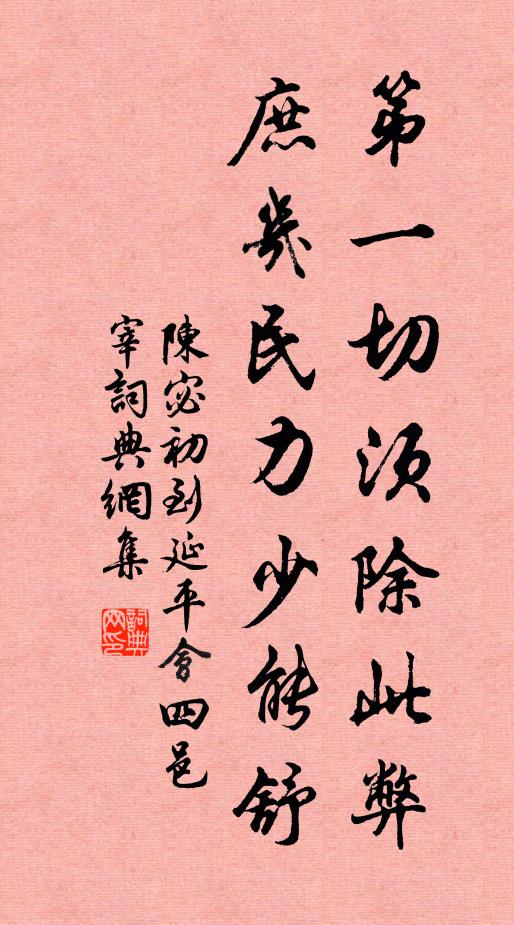 第一切須除此弊
庶幾民力少能舒
陳宓初到延平會四邑
宰詞典網集
詞典網印